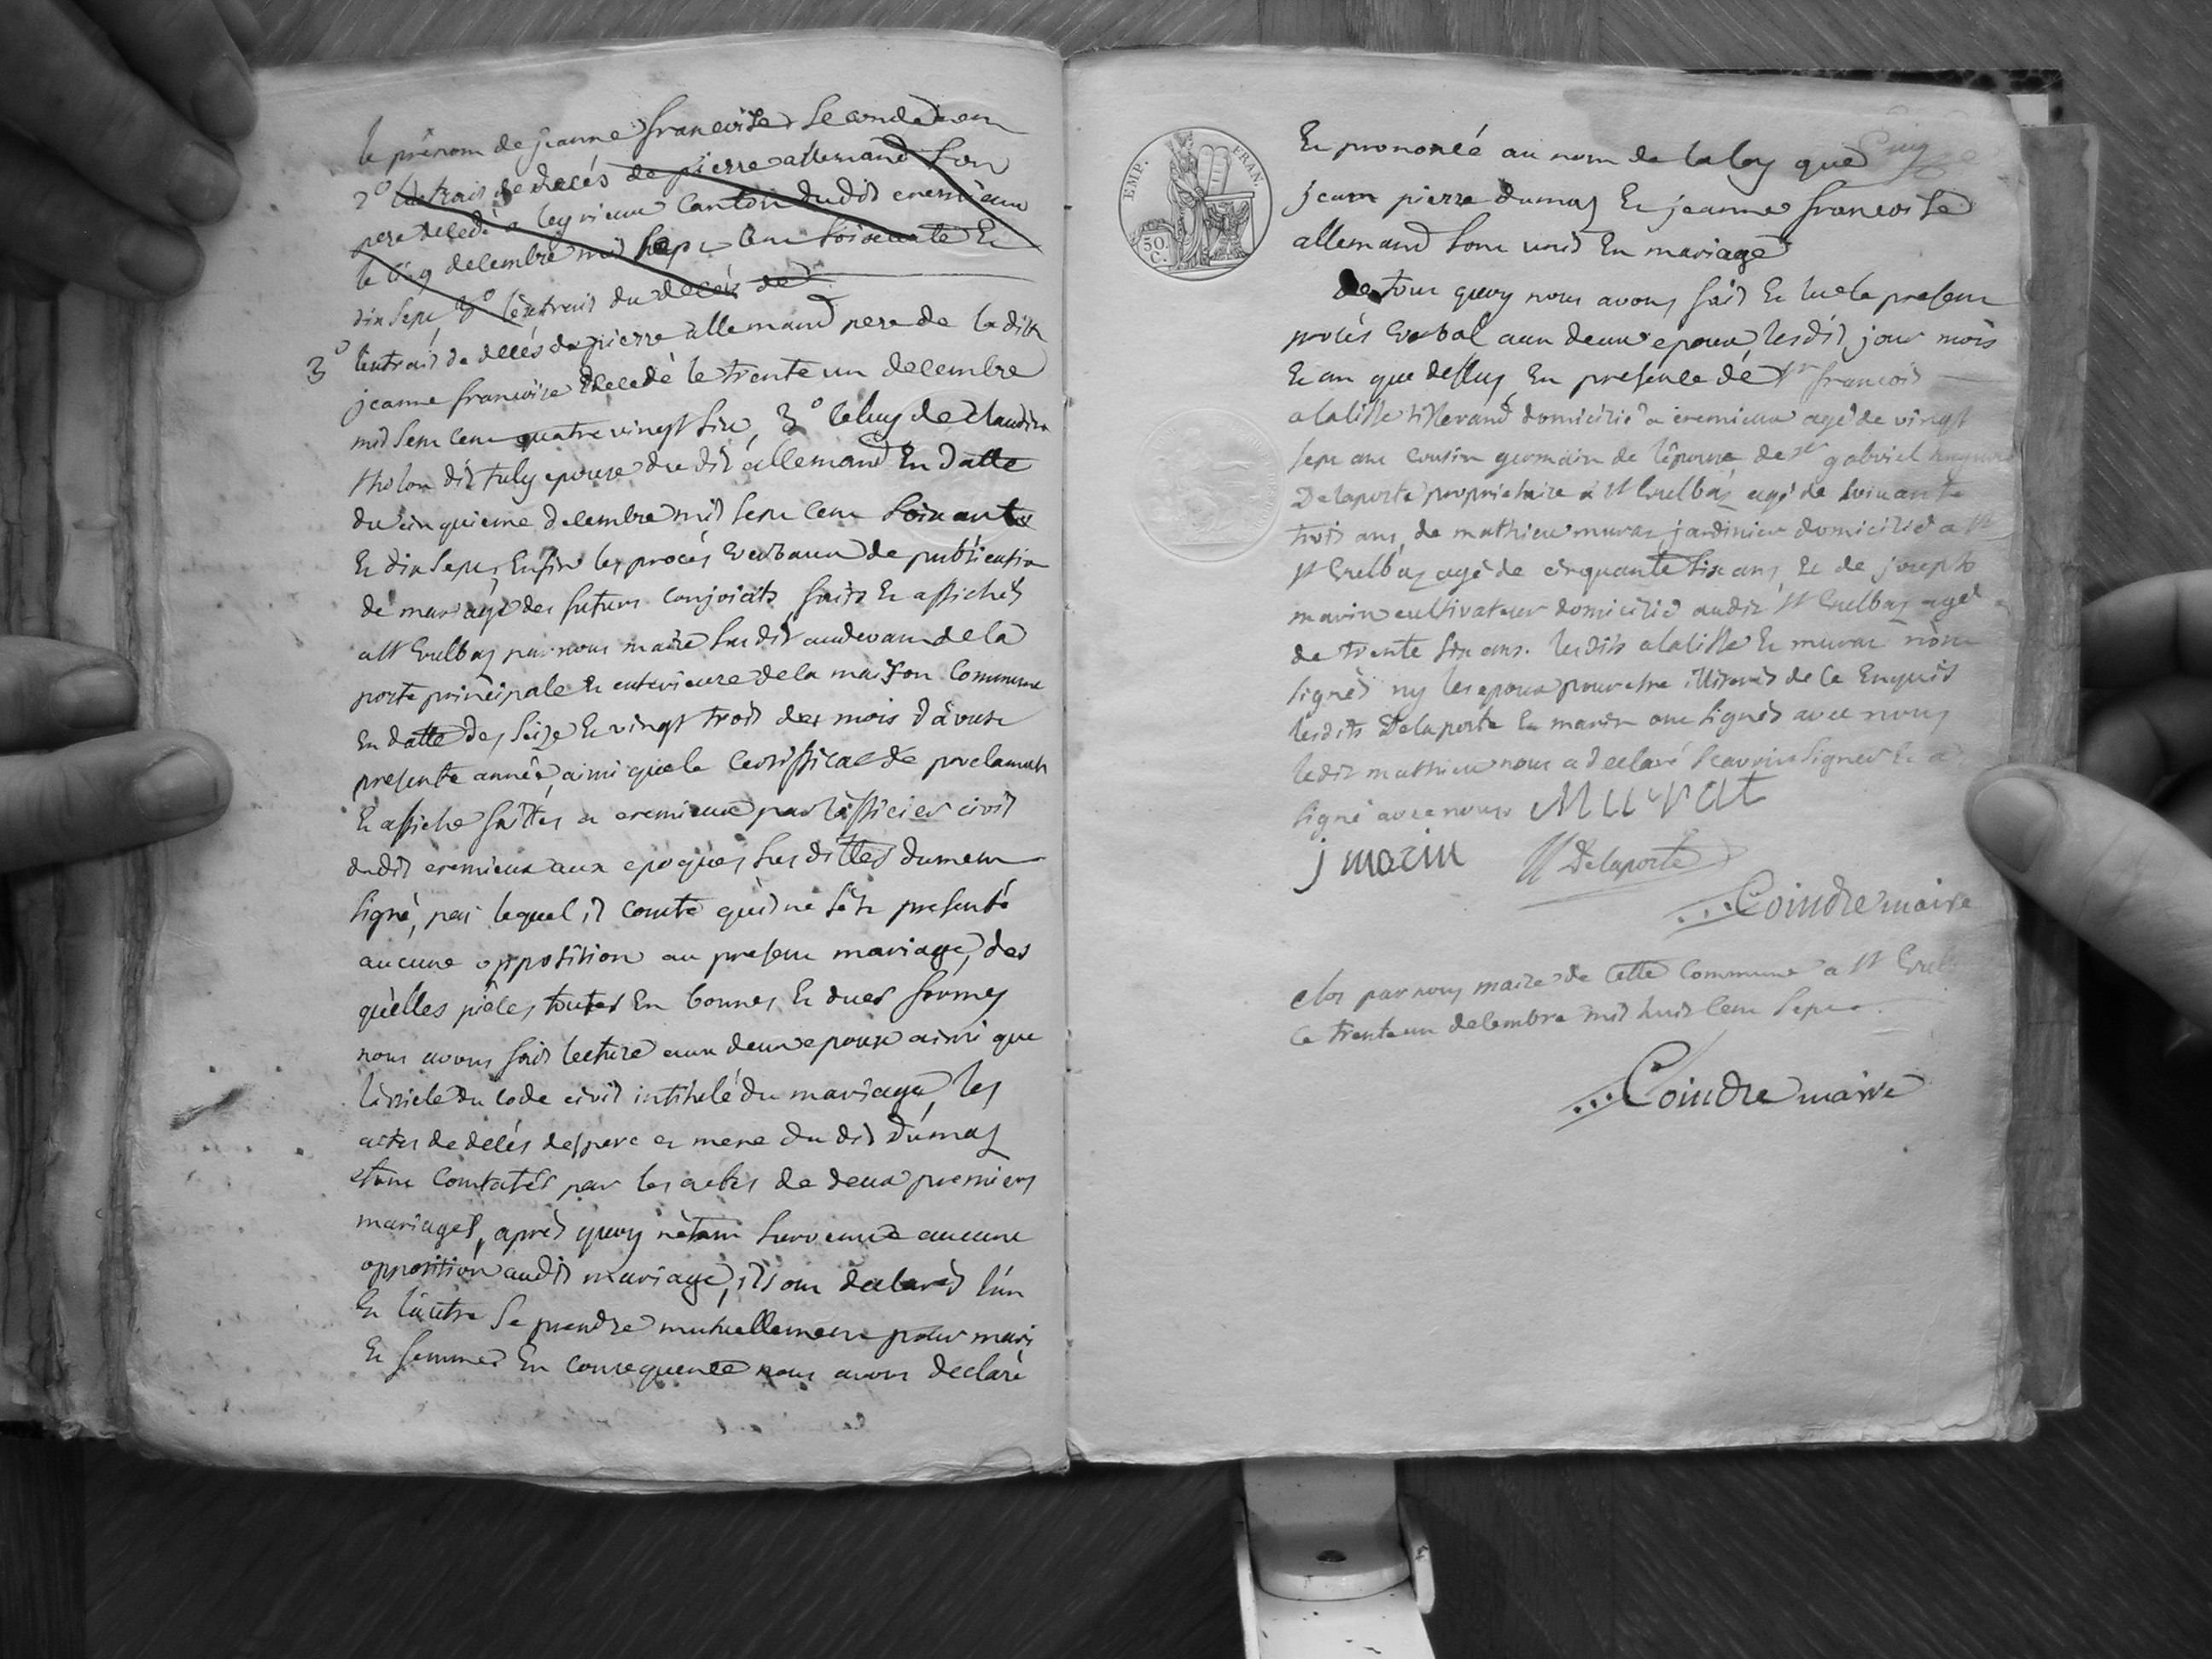 le prénom de jeanne francoise secondement
2° l'extrais de decés de pierre allemand son
pere decedé a leyrieux canton dudit cremieux
le cinq decembre mil sept cent soixante et
dix sept 3° l'extrait du decés de
3° l'extrait de decés de pierre allemand pere de la dite
jeanne francoise decedé le trente un decembre
mil sept cent quatre vingt six, 3° celuy de claudine
tholon dit tuly epouse du dit allemand en datte
du cinquieme decembre mil sept cent soixante
et dix sept, enfin les procés verbaux de publication
de mariage des futurs conjoints faits et affichés
a St Eulbas par nous maire susdit audevant de la
porte principale et exterieure de la maison commune
en datte des seize et vingt trois des mois d'aoust
presente année, ainsi que le certifficat de proclamat
et affiche faittes a cremieux par l'officier civil
dudit cremieux aux epoques susdittes dument
signé, par lequel il conste qu'il ne s'est presenté
aucune opposition au present mariage, des
quelles piéces toutes en bonnes et dues formes
nous avons fait lecture aux deux epoux ainsi que
l'article du code civil intitulé du mariage, les
actes de decés des pere et mere du dit dumas
etant constatés par les actes de deux premiers
mariages, aprés quoy n'étant survenue aucune
opposition audit mariage, ils ont declarés l'un
et l'autre se prendre mutuellement pour mari
et femme en consequence nous avons declaré
EMP. FRAN.
50. C.
et prononcé au nom de la loy que
jean pierre dumas et jeanne francoise
allemand sont unis en mariage
de tout quoy nous avons fait et lu le present
procés verbal aux deux epoux lesdits jour mois
et an que dessus en presence de Sr francois
alalisse tisserand domicilié a cremieux agé de vingt
sept ans cousin germain de l'epouse, de Sr gabriel
Delaporte proprietaire a St Eulbas agé de soixante
trois ans, de mathieu murat jardinier domicilié a St
St Eulbas agé de cinquante six ans, et de joseph
marin cultivateur domicilié audit St Eulbas agé
de trente six ans. lesdits alalisse et murat n'ont
signés ny les epoux pour etre illiterés de ce enquis
lesdits Delaporte et marin ont signés avec nous
ledit mathieu nous a declaré scavoir signer et a
signé avec nous Murat
j marin Delaporte
Coindre maire
clos par nous maire de cette commune a St Eulb
ce trente un decembre mil huit cent sept
Coindre maire